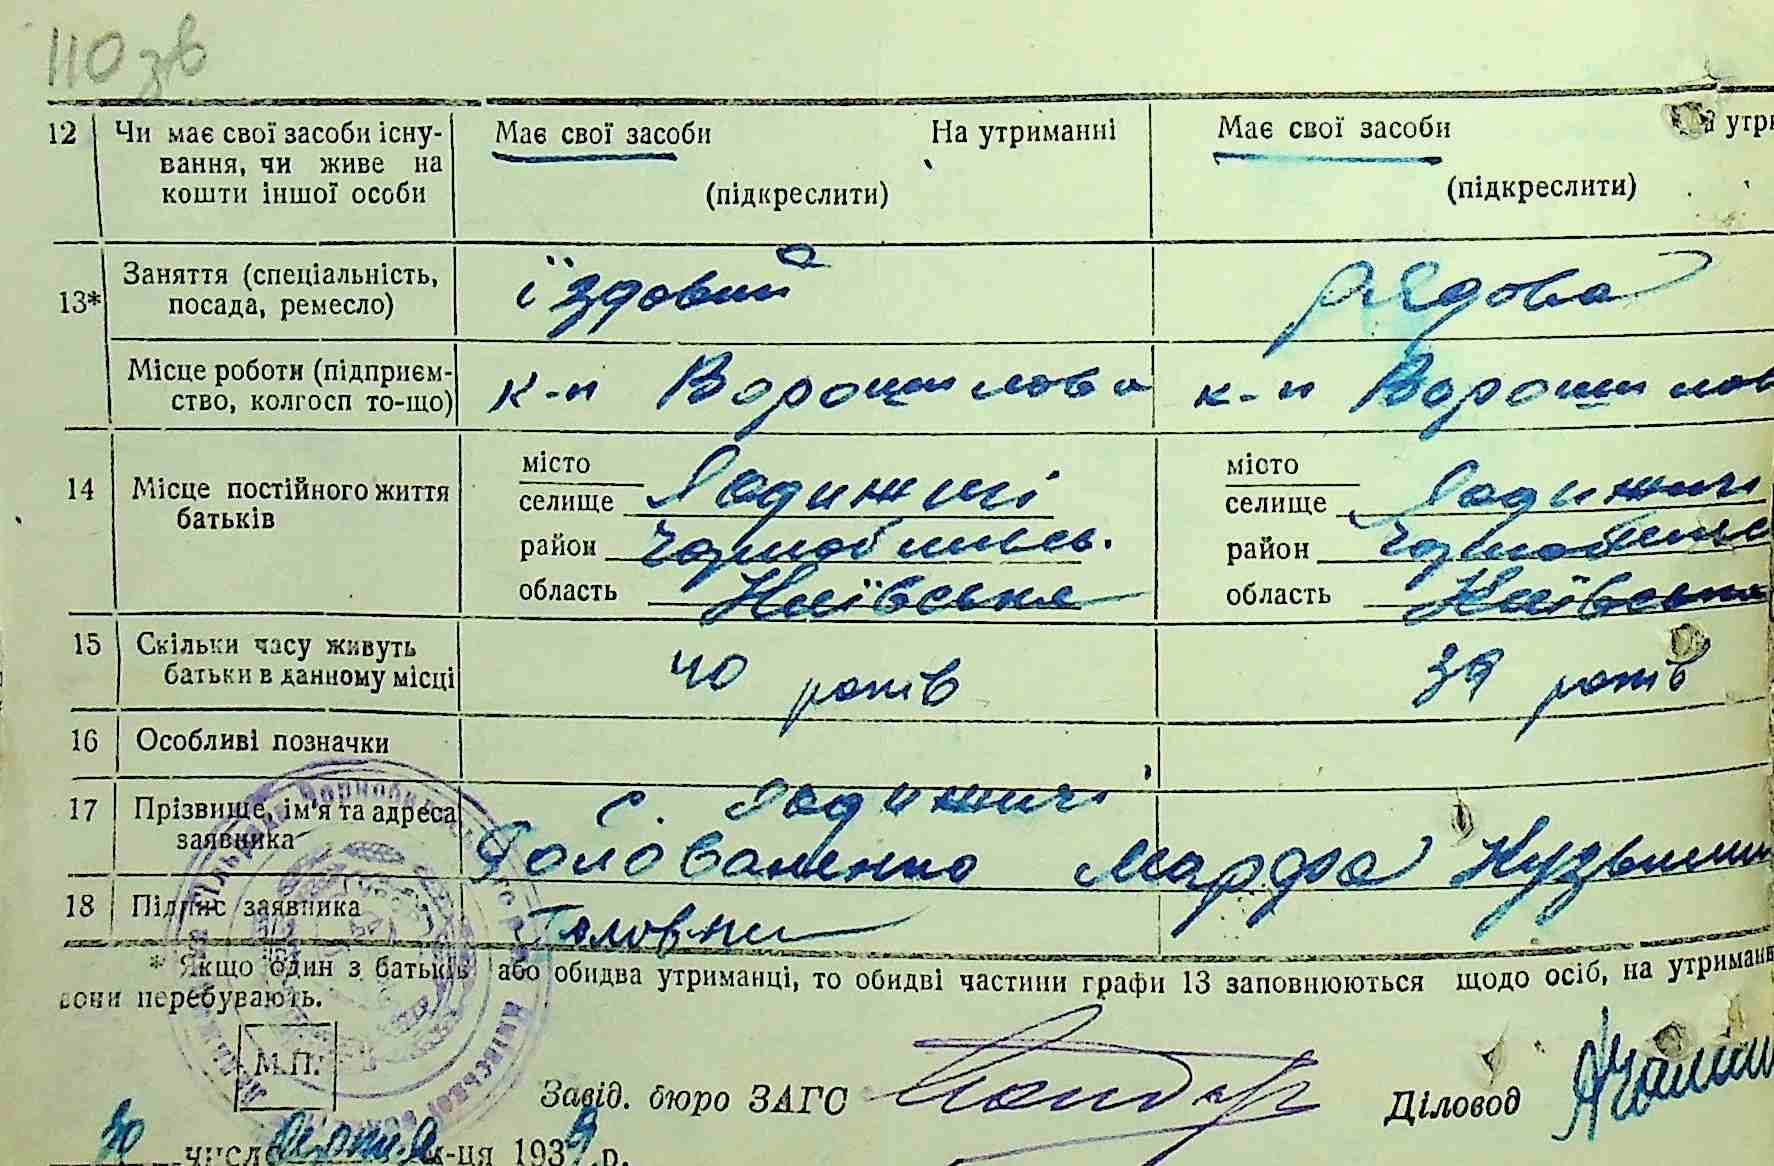 110 зв
12 Чи має свої засоби існу- Має свої засоби На утриманні Має свої засоби
вання, чи живе на
кошти іншої особи (підкреслити) (підкреслити)
13* Заняття (спеціальність, їздовий рядова
посада, ремесло)
Місце роботи (підприєм- к-п Ворошилова к-п Ворошилов
ство, колгосп то-що)
14 Місце постійного життя місто місто
батьків селище Ладижичі селище Ладижичі
район Чорнобильсь. район
область Київська область Київська
15 Скільки часу живуть 40 років 39 років
батьки в данному місці
16 Особливі позначки
17 Прізвище, ім'я та адреса с. Ладижичі
заявника Голованенко Марфа
18 Підпис заявника
* Якщо один з батьків або обидва утриманці, то обидві частини графи 13 заповнюються щодо осіб, на утриманн
вони перебувають.
М.П.
Завід. бюро ЗАГС Діловод
числа м-ця 1939 р.